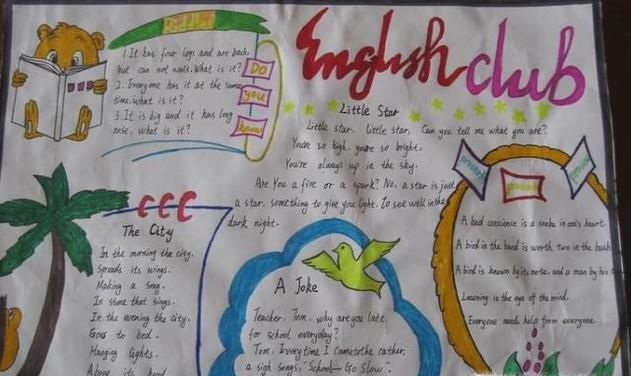 English club
1. It has four legs and are back,
but can not walk. What is it?
2. Everyone has it at the same
time. What is it?
3. It is big and it has long
nose. What is it?
DO
you
know
Little Star
Little star, little star, Can you tell me what you are?
You're so high, you're so bright,
You're always up in the sky.
Are You a fire or a spark? No, a star is just
a star, something to give you light. To see well in the
dark night.
The City
In the morning the city.
Spreads its wings.
Making a song.
In stone that sings.
In the evening the city.
Goes to bed.
Hanging lights.
Above its head
A Joke
Teacher: Tom, why are you late
for school everyday?
Tom: Every time I come to the
a sign songs, "School— Go Slow".
proverb
A bad conscience is a snake in one's heart.
A bird in the hand is worth two in the bush
A bird is known by its note, and a man by his
Learning is the eye of the mind.
Everyone needs help from everyone.